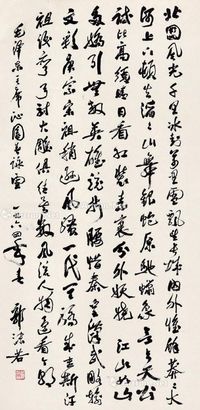 北国風光千里冰封万里雪飘望长城内外惟餘莽莽大
河上下顿失滔滔山舞銀蛇原馳蠟象欲与天公
試比高須晴日看红装素裹分外妖娆江山如此
多嬌引無数英雄競折腰惜秦皇漢武略輸
文彩唐宗宋祖稍遜風騷一代天驕成吉斯汗
祗识弯弓射大雕俱往矣数風流人物還看今朝
毛澤东主席沁园春詠雪 一九六四年春 郭沫若